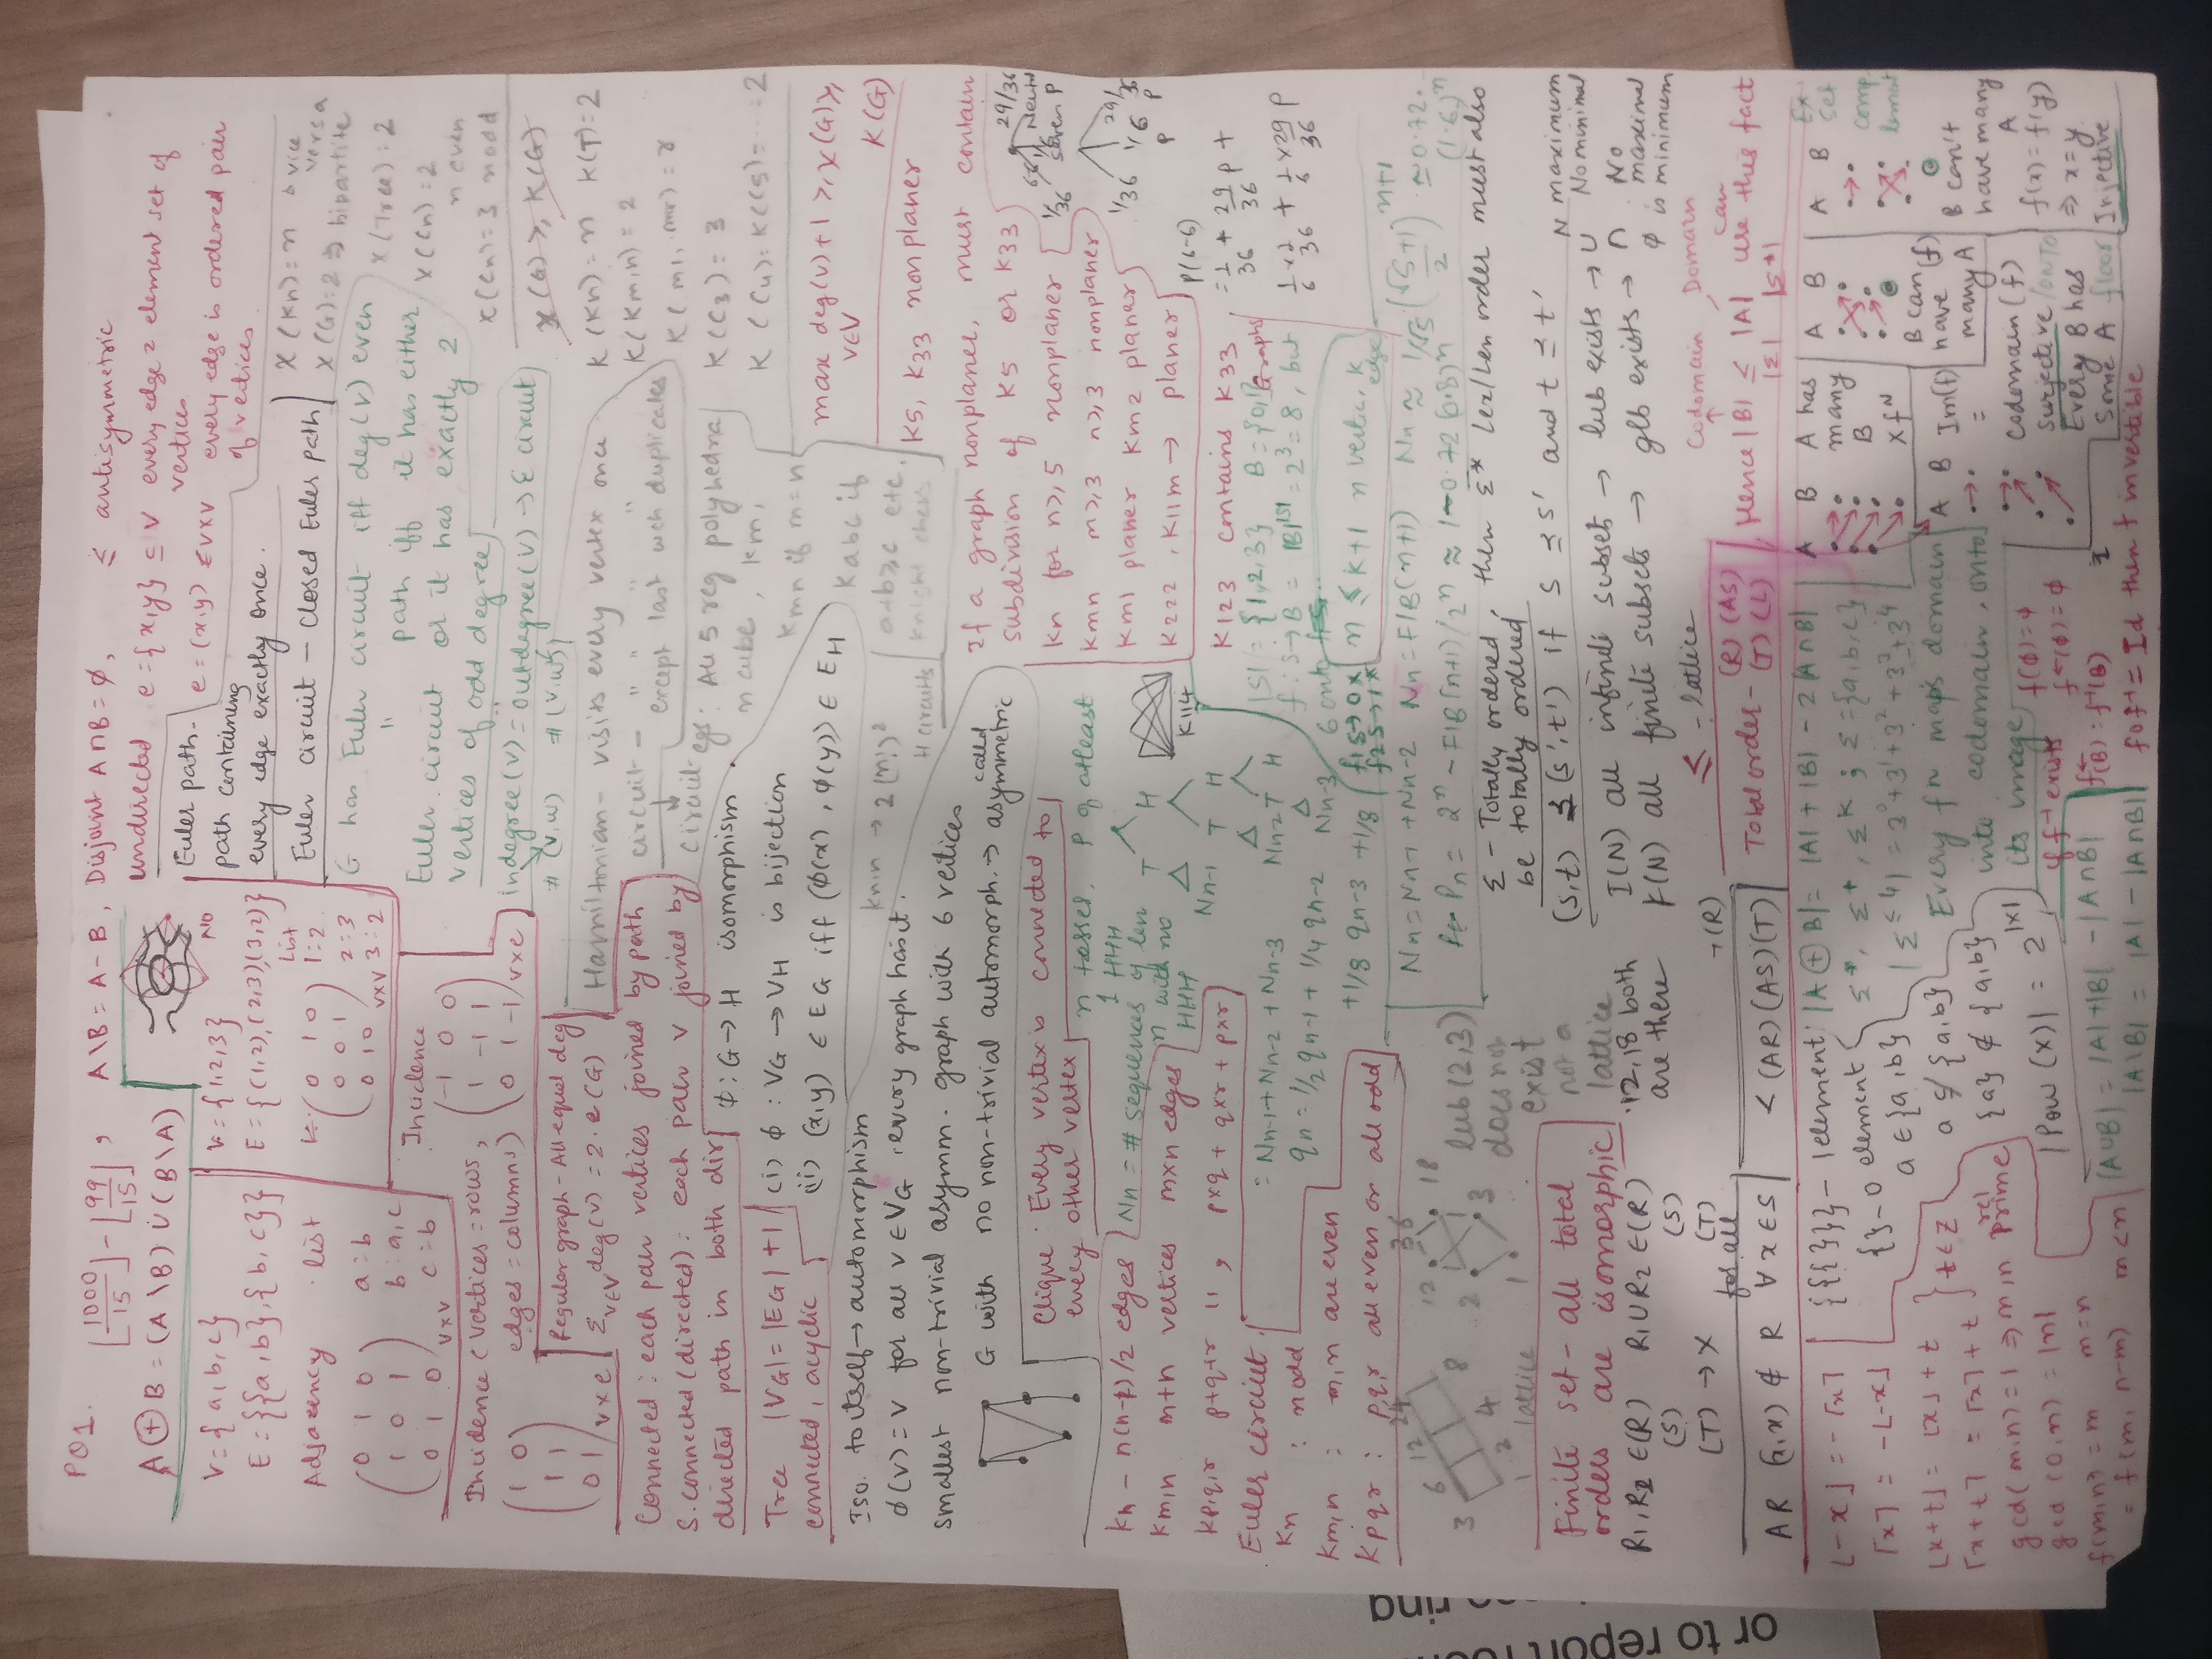 PQ1.
⌊1000/15⌋ - ⌊99/15⌋ , A\B = A-B, Disjoint A∩B = ϕ, ≤ antisymmetric
A⊕B = (A\B) ∪ (B\A)
undirected e={x,y} ⊆ V every edge 2 element set of vertices
e=(x,y) ∈ V×V every edge is ordered pair of vertices.
V={a,b,c}
E={{a,b},{b,c}}
V={1,2,3}
E={(1,2),(2,3),(3,2)}
Adjacency list
(0 1 0
1 0 1
0 1 0) V×V
a:b
b:a,c
c:b
(0 1 0
0 0 1
0 1 0) V×V
List
1:2
2:3
3:2
NO
Incidence (vertices=rows, edges=columns)
(1 0
1 1
0 1) V×e
Incidence
(-1 0 0
1 -1 1
0 1 -1) V×e
Euler path.
path containing every edge exactly once.
Euler circuit - closed Euler path
G has Euler circuit iff deg(v) even
" path iff it has either
Euler circuit or it has exactly 2
vertices of odd degree
indegree(v) = outdegree(v) → E circuit
# (v,w) # (v,w)
χ(Kn)=n
χ(G)=2 ⇒ bipartite
vice versa
χ(Tree)=2
χ(Cn)=2 n even
χ(Cn)=3 n odd
χ(G) ≥ K(G)
Regular graph - All equal deg
Σ v∈V deg(v) = 2·e(G)
Hamiltonian - visits every vertex once
circuit - " " "
except last which duplicates
circuit
egs: All 5 reg polyhedra
n cube, Km,
Kmn if m=n
Kabc if
a+b≥c etc.
knight chess
H circuits
K(Kn)=n K(T)=2
K(Km,n)=2
K(m1..mr)=r
K(C3)=3
K(C4)=K(C5)=...=2
max v∈V deg(v)+1 ≥ χ(G) ≥ K(G)
Connected: each pair vertices joined by path
S.connected (directed): each pair v joined by
directed path in both dir
Tree |VG| = |EG| + 1
connected, acyclic
ϕ: G→H isomorphism.
(i) ϕ: VG → VH is bijection
(ii) (x,y) ∈ EG iff (ϕ(x), ϕ(y)) ∈ EH
Iso. to itself → automorphism
ϕ(v)=v for all v∈VG. every graph has it.
Kn,n → 2(n!)²
smallest non-trivial asymm. graph with 6 vertices
G with no non-trivial automorph. → called asymmetric
K5, K33 non planer
If a graph nonplaner, must contain
subdivision of K5 or K33
Kn for n≥5 nonplaner
Kmn m≥3 n≥3 nonplaner
Km1 planer Km2 planer
K222, K11m → planer
K123 contains K33
K114
Clique: Every vertex is connected to
every other vertex
Kn - n(n-1)/2 edges
Km,n m+n vertices m×n edges
Kp,q,r p+q+r " , p×q + q×r + p×r
Euler circuit.
Kn : n odd
Km,n : m,n are even
Kpqr : p,q,r all even or all odd
n tosses, P of atleast
1 HHH
Nn = # sequences of len
n with no
HHH
= Nn-1 + Nn-2 + Nn-3
qn = 1/2 qn-1 + 1/4 qn-2
+ 1/8 qn-3 + 1/8
T H
Nn-1 T H
Nn-2 T H
Nn-3
1/36 29/36 Neither
6-6 1/6 seven P
1/36 1/6 29/36
P P
P(6-6)
= 1/36 + 29/36 P +
1/6 × 1/36 + 1/6 × 29/36 P
|S| = {1,2,3} B={0,1}
f: S→B = |B|^|S| = 2³ = 8, but
6 onto
f1 S→0 X
f2 S→1 X
Graphs
n ≤ k+1 n vertic, k edge
Nn = Nn-1 + Nn-2 Nn = FIB(n+1) Nn ≈ 1/√5 ((√5+1)/2)^n+1
Pn = 2^n - FIB(n+1)/2^n ≈ 1-0.72(0.8)^n
≈ 0.72·(1.6)^n
3 6 12 24
1 2 4 8
lattice
12 18 36
2 3
1
lub(2,3)
does not
exist
not a
lattice
12,18 both
are there
Finite set - all total
orders are isomorphic
Σ - Totally ordered, then Σ* lex/len order must also
be totally ordered
(s,t) ≤ (s',t') if s ≤ s' and t ≤ t'
I(N) all infinite subset → lub exists → ∪ N maximum No minimal
F(N) all finite subsets → glb exists → ∩ No maximal ϕ is minimum
R1,R2 ∈(R) R1∪R2 ∈(R)
(S) (S)
(T) → X (T)
≤ - lattice
Total order - (R) (AS) (T) (L)
Codomain, Domain
Hence |B| ≤ |A| can use this fact
AR (x,x) ∉ R for all ∀x∈S
¬(R)
< (AR)(AS)(T)
⌊-x⌋ = -⌈x⌉
⌈x⌉ = -⌊-x⌋
⌊x+t⌋ = ⌊x⌋+t
⌈x+t⌉ = ⌈x⌉+t
} t∈Z
gcd(m,n)=1 ⇒ m,n rel prime
gcd(0,m) = |m|
f(m,n) = m m=n
= f(m,n-m) m<n
{{{}}} - 1 element
{} - 0 element
a ∈ {a,b}
a ⊄ {a,b}
{a} ∉ {a,b}
|Pow(X)| = 2^|X|
|A∪B| = |A|+|B| - |A∩B|
|A\B| = |A| - |A∩B|
|A⊕B| = |A|+|B| - 2|A∩B|
Σ*, Σ+, Σk ; Σ={a,b,c}
|Σ≤4| = 3⁰+3¹+3²+3³+3⁴
Every fn maps domain
into codomain, onto
its image
f(ϕ)=ϕ
f←(ϕ)=ϕ
if f⁻¹ exists
f←(B) : f⁻¹(B)
f∘f⁻¹ = Id then f invertible
A B
A has
many
B
X fN
A B
B can (f)
have
many A
A B
B can't
have many
A
f(x)=f(y)
⇒ x=y
Injective
A B
Im(f)
=
codomain(f)
Surjective/onto
Every B has
some A
Ex
set
comp
lement
or to report room
ring